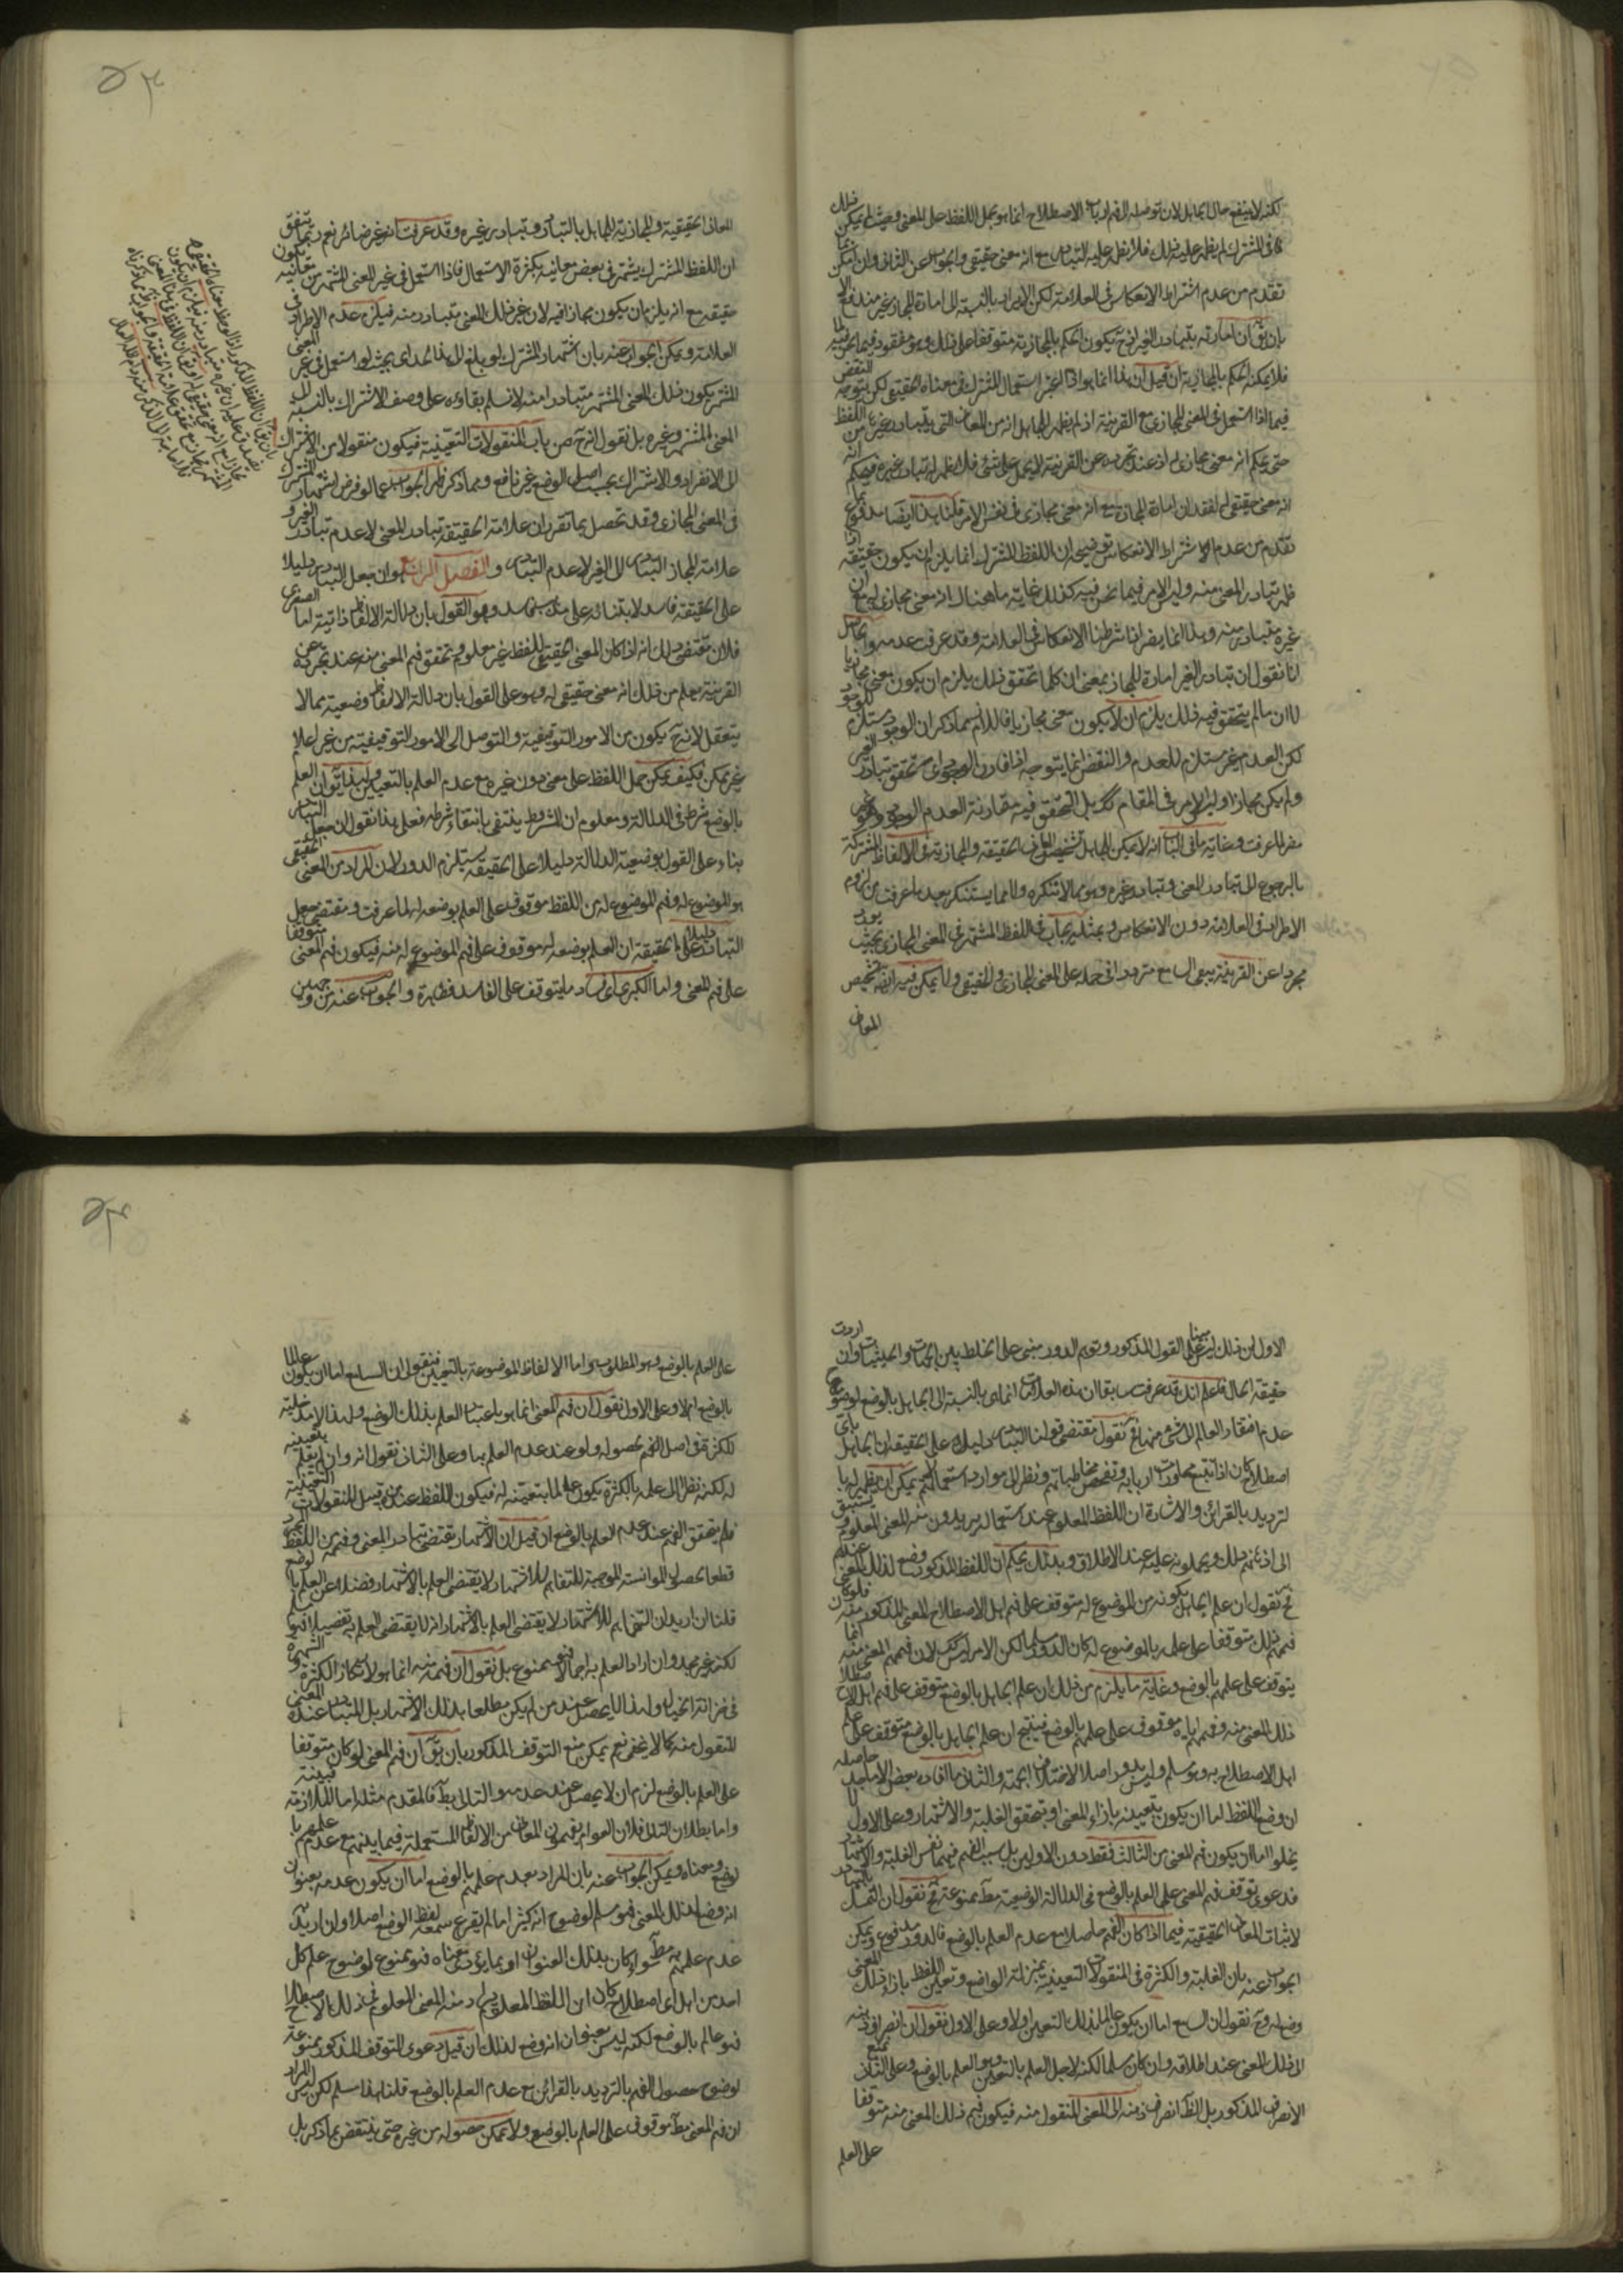 لكنه لا ينفع حال الجاهل لان توصله الى فهم ارباب الاصطلاح انما هو بحمل اللفظ على المعنى وحيث لم يكن ذلك
كما فى المشترك لم يظهر عليه ذلك فلا يظهر عليه التبادر مع انه معنى حقيقى والجواب عن الثانى وان امكن بما
تقدم من عدم اشتراط الانعكاس فى العلامة لكن الايراد بالنسبة الى امارة المجاز غير مندفع الا
بان يق ان امارته تبادر الغير فح يكون الحكم بالمجازية متوقفا على ذلك وهو مفقود فيما نحن فيه
فلا يمكنه الحكم بالمجازية فان قيل ان هذا انما هو اذا اعتبر استعمال المشترك فى معناه الحقيقى لكن يتوجه النقض
فيما اذا استعمل فى المعنى المجازى مع القرينة اذ لم يظهر للجاهل انه من المعانى التى يتبادر غيرها من اللفظ
حتى يحكم انه معنى مجازى له اذ عند تجرده عن القرينة لا يحمل على شئ فلم يظهر له تبادر غيره فيحكم انه
انه معنى حقيقى له لفقدان امارة المجاز مع انه معنى مجازى فى نفس الامر قلنا هذا ايضا مدفوع بما
تقدم من عدم اشتراط الانعكاس توضيحه ان اللفظ المشترك انما يلزم ان يكون حقيقة اذا
ظهر تبادر المعنى منه وليس الامر فيما نحن فيه كذلك غاية ما هناك انه معنى مجازى له مع ان
غيره متبادر منه وهذا انما يضر اذا شرطنا الانعكاس فى العلامة وقد عرفت عدمه والحاصل
انا نقول ان تبادر الغير امارة للمجاز بمعنى ان كلما تحقق ذلك يلزم ان يكون معنى مجازيا
لا ان ما لم يتحقق فيه ذلك يلزم ان لا يكون معنى مجازيا فاللازم مما ذكر ان الوجود مستلزم للوجود
لكن العدم غير مستلزم للعدم والنقض انما يتوجه اذا فارق الوجود اى تحقق تبادر الغير
ولم يكن مجازا وليس الامر فى المقام كك بل المتحقق فيه مقارنة العدم الوجود وهو غير
مضر لما عرفت وغاية ما فى الباب انه لا يمكن للجاهل تشخيص المعانى الحقيقة والمجازية فى الالفاظ المشتركة
بالرجوع الى تبادر المعنى وتبادر غيره وهو مما لا ننكره ولا مما يستنكر بعد ما عرفت من لزوم
الاطراد فى العلامة دون الانعكاس وبمثله يجاب فى اللفظ المشتهر فى المعنى المجازى بحيث يورد
مجردا عن القرينة يبقى السامع مترددا فى حمله على المعنى المجازى والحقيقى ولا يمكن فيه ايضا تشخيص
المعانى
المعانى الحقيقية والمجازية للجاهل بالتبادر وتبادر غيره وقد عرفت انه غير ضائر نعم ربما يتفق
ان اللفظ المشترك يشتهر فى بعض معانيه بكثرة الاستعمال فاذا استعمل فى غير المعنى المشتهر من معانيه يكون
حقيقة مع انه يلزم ان يكون مجازا فيه لان غير ذلك المعنى متبادر منه فيلزم عدم الاطراد فى
العلامة ويمكن الجواب عنه بان اشتهار المشترك لو بلغ الى هذا الحد اى بحيث لو استعمل فى غير المعنى
المشتهر يكون ذلك المعنى المشتهر متبادرا منه لا نسلم بقاءه على وصف الاشتراك بالنسبة الى
المعنى المشتهر وغيره بل نقول انه ح من باب المنقولات التعينية فيكون منقولا من الاشتراك
الى الانفراد والاشتراك بحسب اصل الوضع غير نافع ومما ذكر ظهر الجواب عما لو فرض اشتهار المشترك
فى المعنى المجازى وقد تحصل بما تقرر ان علامة الحقيقة تبادر المعنى لا عدم تبادر الغير و
علامة المجاز التبادر الى الغير لا عدم التبادر والفصل الرابع هو ان جعل التبادر دليلا
على الحقيقة فاسد لابتنائه على مذهب فاسد وهو القول بان دلالة الالفاظ ذاتية اما الصغرى
فلان مقتضى ذلك انه اذا كان المعنى الحقيقى للفظ غير معلوم تحقق فهم المعنى منه عند تجرده عن
القرينة يعلم من ذلك انه معنى حقيقى له وهو على القول بان دلالة الالفاظ وضعية مما لا
يتعقل لانه ح يكون من الامور التوقيفية والتوصل الى الامور التوقيفية من غير اعلام
غير ممكن فكيف يمكن حمل اللفظ على معنى دون غيره مع عدم العلم بالتعيين ولهذا يق ان العلم
بالوضع شرط فى الدلالة ومعلوم ان المشروط ينتفى بانتفاء شرطه فعلى هذا نقول ان جعل التبادر
بناء على القول بوضعية الدلالة دليلا على الحقيقة يستلزم الدور لان المراد من المعنى الحقيقى
هو الموضوع له وفهم الموضوع له من اللفظ موقوف على العلم بوضعه له لما عرفت ومقتضى جعل
التبادر دليلا على الحقيقة ان العلم بوضعه له موقوف على فهم الموضوع له منه فيكون فهم المعنى متوقفا
على فهم المعنى واما الكبرى اى فساد ما يتوقف على الفاسد فظاهرة والجواب عنه من وجهين
الاول ان ذلك ليس مبنيا على القول المذكور وتوهم الدور مبنى على الخلط بين الجهات والحيثيات وان اردت
حقيقة الحال فاعلم انك قد عرفت سابقا ان هذه العلامات انما هى بالنسبة الى الجاهل بالوضع لوضوح
عدم افتقار العالم الى شئ منها فح نقول مقتضى قولنا التبادر دليل على الحقيقة ان الجاهل باى
اصطلاح كان اذا تتبع محاورات اربابه وتفحص مخاطباتهم ونظر الى موارد استعمالاتهم يمكن ان يظهر له با
لترديد بالقرائن والاشارة ان اللفظ المعلوم عند استعماله يريدون منه المعنى المعلوم ويسبق
الى اذهانهم ذلك ويحملونه عليه عند الاطلاق وبذلك يحكم ان اللفظ المذكور وضع لذلك المعنى عندهم
فح نقول ان علم الجاهل بكونه من الموضوع له متوقف على فهم اهل الاصطلاح المعنى المذكور منه فلو كان
فهمهم ذلك متوقفا على علمه بالموضوع له كان الدور مسلما لكن الامر ليس كك لان فهمهم المعنى منه انما
يتوقف على علمهم بالوضع وغاية ما يلزم من ذلك ان علم الجاهل بالوضع متوقف على فهم اهل الاصطلاح
ذلك المعنى منه وفهمهم اياه موقوف على علمهم بالوضع فينتج ان علم الجاهل بالوضع متوقف على علم
اهل الاصطلاح به وهو مسلم وليس بدور اصلا لاختلاف الجهة والثانى ما افاده بعض الاماجد حاصله
ان وضع اللفظ اما ان يكون بتعيينه بازاء المعنى او بتحقق الغلبة والاشتهار وعلى الاول لا
يخلوا اما ان يكون فهم المعنى من الثالث فقط دون الاولين بل سبب الفهم فيهما نفس الغلبة والاشتهار
فدعوى توقف فهم المعنى على العلم بالوضع فى الدلالة الوضعية مط ممنوعة فح نقول ان التمسك بالتبادر
لاثبات المعانى الحقيقية فيما اذا كان الفهم حاصلا مع عدم العلم بالوضع فالدور مدفوع ويمكن
الجواب عنه بان الغلبة والكثرة فى المنقولات التعينية بمنزلة الواضع وتعيين اللفظ بازاء ذلك المعنى
وضع له وح نقول ان السامع اما ان يكون عالما بذلك التعين اولا وعلى الاول نقول ان انصراف ذهنه
الى ذلك المعنى عند اطلاقه وان كان مسلما لكنه لاجل العلم بالتعين وهو العلم بالوضع وعلى الثانى نمنع
الانصراف المذكور بل الظ انصراف ذهنه الى المعنى المنقول منه فيكون فهم ذلك المعنى منه متوقفا
على العلم
على العلم بالوضع وهو المطلوب واما الالفاظ الموضوعة بالتعيين فنقول ان السامع اما ان يكون عالما
بالوضع ام لا وعلى الاول نقول ان فهم المعنى انما هو باعتبار العلم بذلك الوضع ولهذا لا مدخلية
للكثرة فى اصل الفهم لحصوله ولو عند عدم العلم بها وعلى الثانى نقول انه وان لم يعلم بتعيينه
له لكنه نظرا الى علمه بالكثرة يكون عالما بتعينه له فيكون اللفظ عنده من قبيل المنقولات التعينية
فلم يتحقق الفهم عند عدم العلم بالوضع ان قيل ان الاشتهار يقتضى تبادر المعنى وفهمه من اللفظ
قطعا لحصول الموانسة الموجبة للتفاهم للاشتهار ولا يقتضى العلم بالاشتهار فضلا عن العلم بالوضع
قلنا ان اريد ان التفاهم للاشتهار لا يقتضى العلم بالاشتهار انه لا يقتضى العلم به تفصيلا فهو مسلم
لكنه غير مجد وان اراد العلم به اجمالا فهو ممنوع بل نقول ان فهمه منه انما هو لارتكاز الكثرة والشهرة
فى خزانة الخيال ولهذا لا يحصل عند من لم يكن مطلعا بذلك الاشتهار بل المتبادر عنده المعنى
المنقول منه كما لا يخفى نعم يمكن منع التوقف المذكور بان يق ان فهم المعنى لو كان متوقفا
على العلم بالوضع لزم ان لا يحصل عند عدمه والتالى بط فالمقدم مثله اما الملازمة فبينة
واما بطلان التالى فلان العوام يفهمون المعانى من الالفاظ المستعملة فيما بينهم مع عدم علمهم با
لوضع ومعناه ويمكن الجواب عنه بان المراد بعدم علمهم بالوضع اما ان يكون عدمه بعنوان
انه وضع لذلك المعنى فهو مسلم لوضوح انه كثيرا ما لم يقرع سمعه لفظ الوضع اصلا وان اريد
عدم علمهم به مط سواء كان بذلك العنوان او بما يؤدى معناه فهو ممنوع لوضوح علم كل
احد من اهل اى اصطلاح كان ان اللفظ المعلوم يراد منه المعنى المعلوم فى ذلك الاصطلاح
فهو عالم بالوضع لكنه ليس بعنوان انه وضع لذلك ان قيل دعوى التوقف المذكور ممنوعة
لوضوح حصول الفهم بالترديد بالقرائن مع عدم العلم بالوضع قلنا هذا مسلم لكن ليس المراد
ان فهم المعنى مط موقوف على العلم بالوضع ولا يمكن حصوله من غيره حتى ينتقض بما ذكر بل